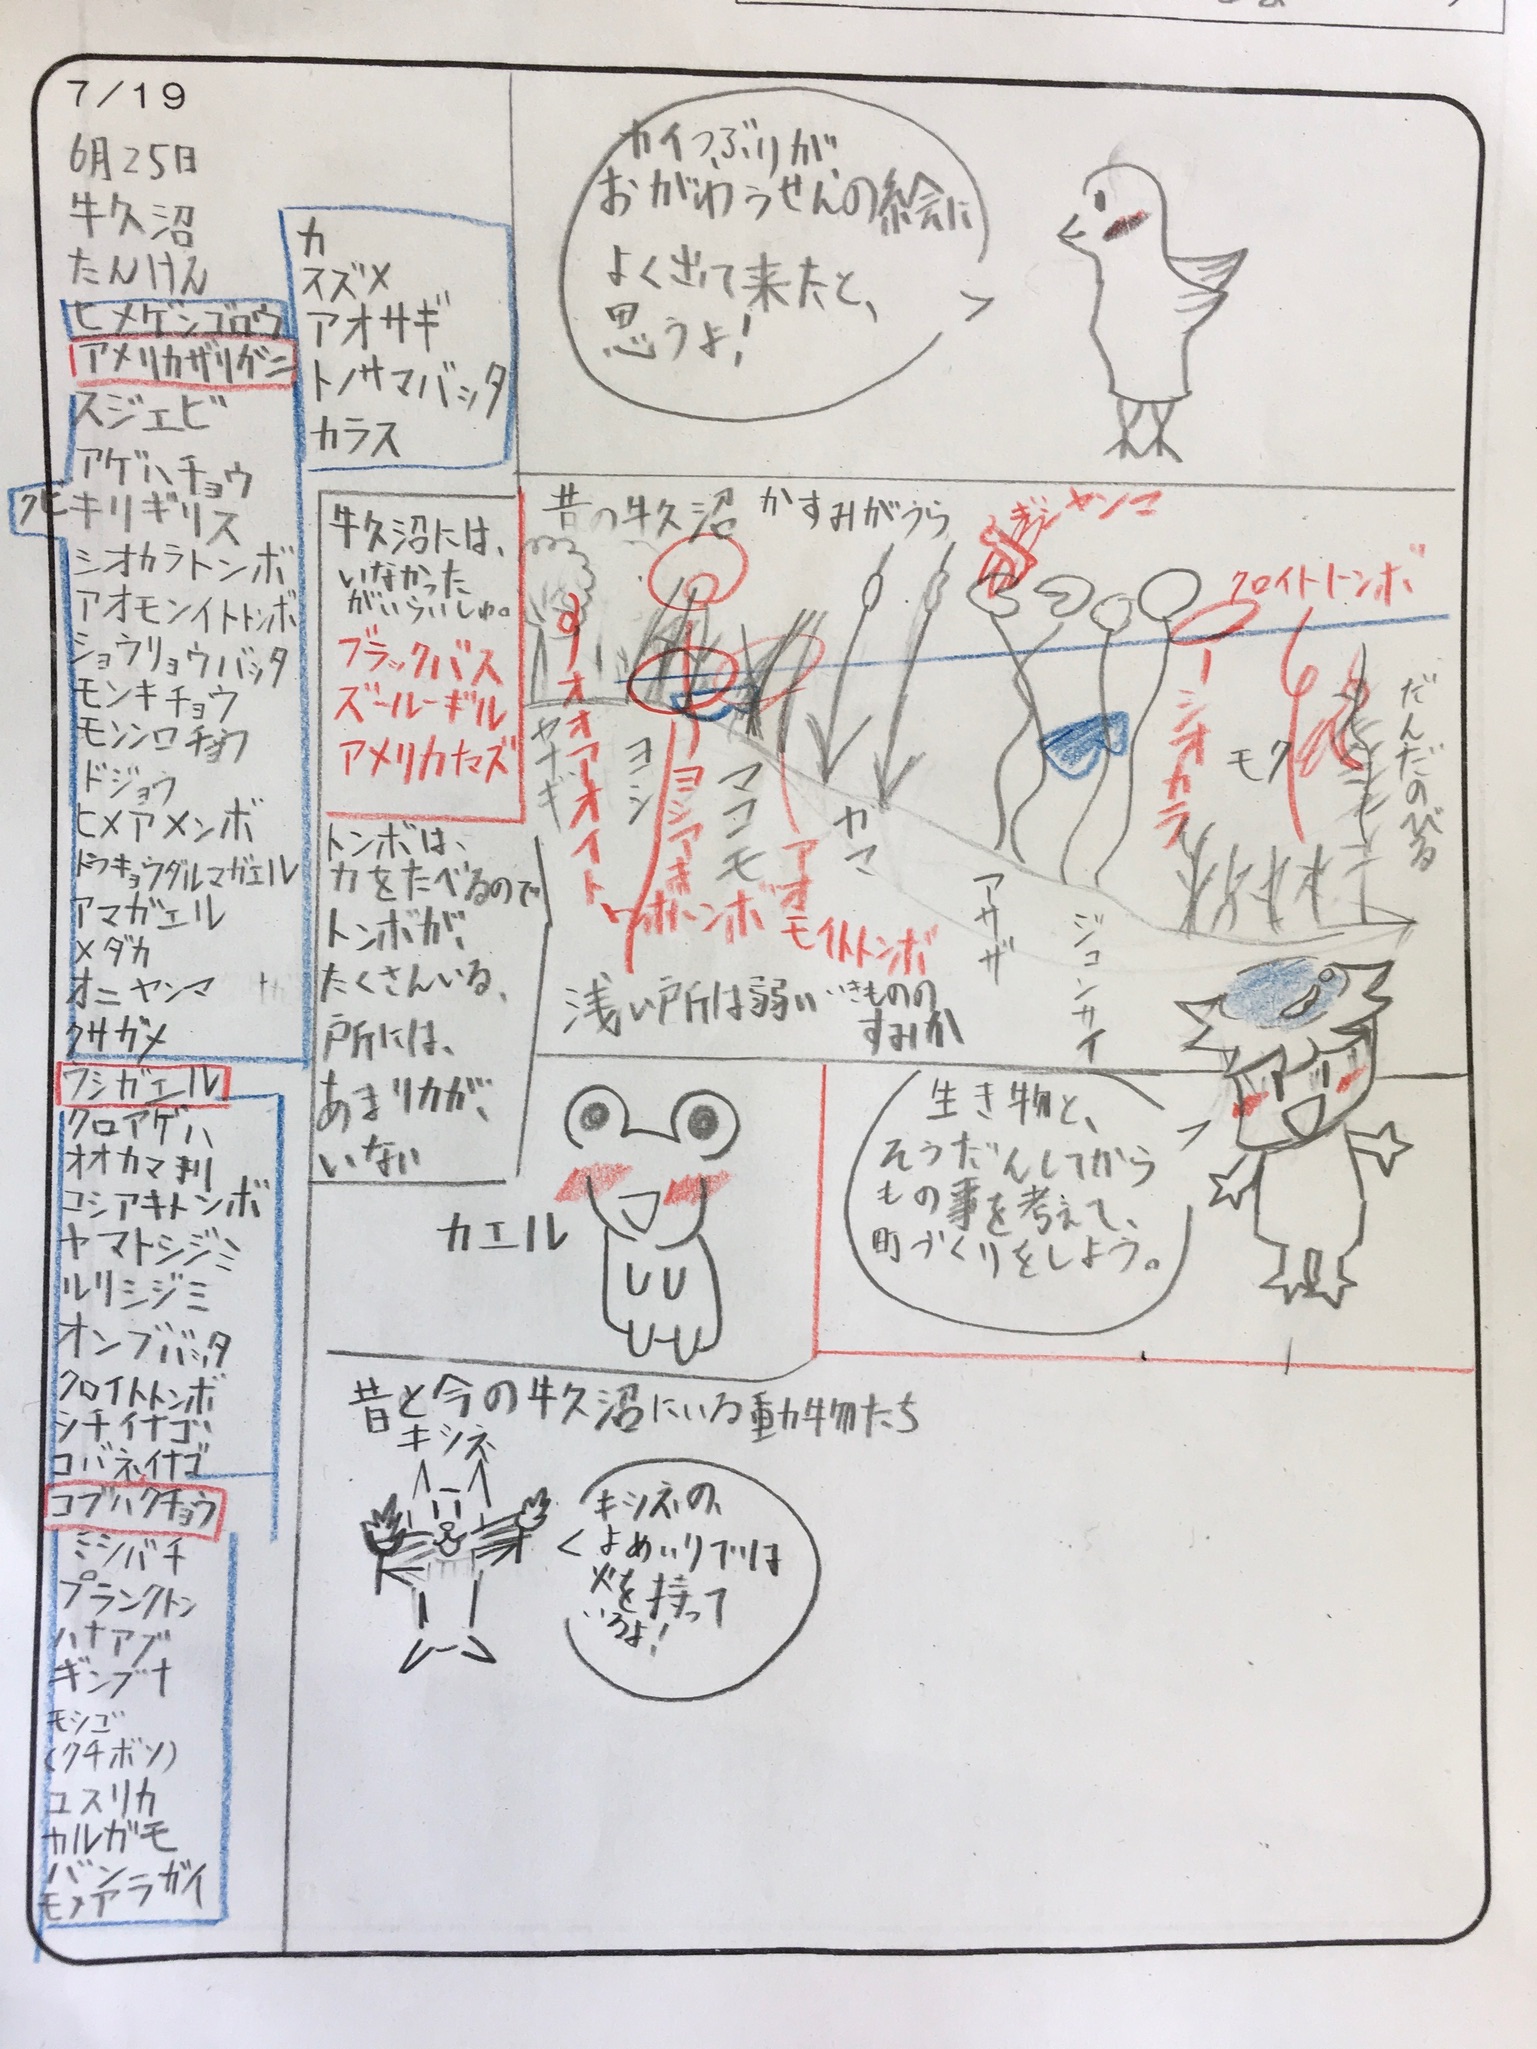 7/19
6月25日
牛久沼
たんけん
ヒメゲンゴロウ
アメリカザリガニ
スジエビ
アゲハチョウ
クビキリギリス
シオカラトンボ
アオモンイトトンボ
ショウリョウバッタ
モンキチョウ
モンシロチョウ
ドジョウ
ヒメアメンボ
アマガエル
メダカ
オニヤンマ
クサガメ
ウシガエル
クロアゲハ
オオカマキリ
コシアキトンボ
ヤマトシジミ
ルリシジミ
オンブバッタ
クロイトトンボ
コバネイナゴ
コブハクチョウ
ミツバチ
プランクトン
ハナアブ
ギンブナ
モツゴ
(クチボソ)
ユスリカ
カルガモ
カ
スズメ
アオサギ
トノサマバッタ
カラス
カイつぶりが、
おがわうせんの絵に
よく出て来たと、
思うよ!
牛久沼には、
いなかった
がいらいしゅ。
ブラックバス
ズールーギル
アメリカナマズ
トンボは、
カをたべるので
トンボが、
たくさんいる、
戸所には、
あまりカが、
いない
昔の牛久沼 かすみがうら
ヤンマ
クロイトトンボ
ヤナギ
オオアオイト
ヨシ
マコモ
アオモイトトンボ
ガマ
アサザ
ジュンカイ
シオカラ
モク
浅い戸所は弱いいきものの
すみか
カエル
生き物と、
そうだんしてから
もの事を考えて、
町づくりをしよう。
昔と今の牛久沼にいる動物たち
キツネ
キツネの、
よめいりでは
火を持って
いるよ!